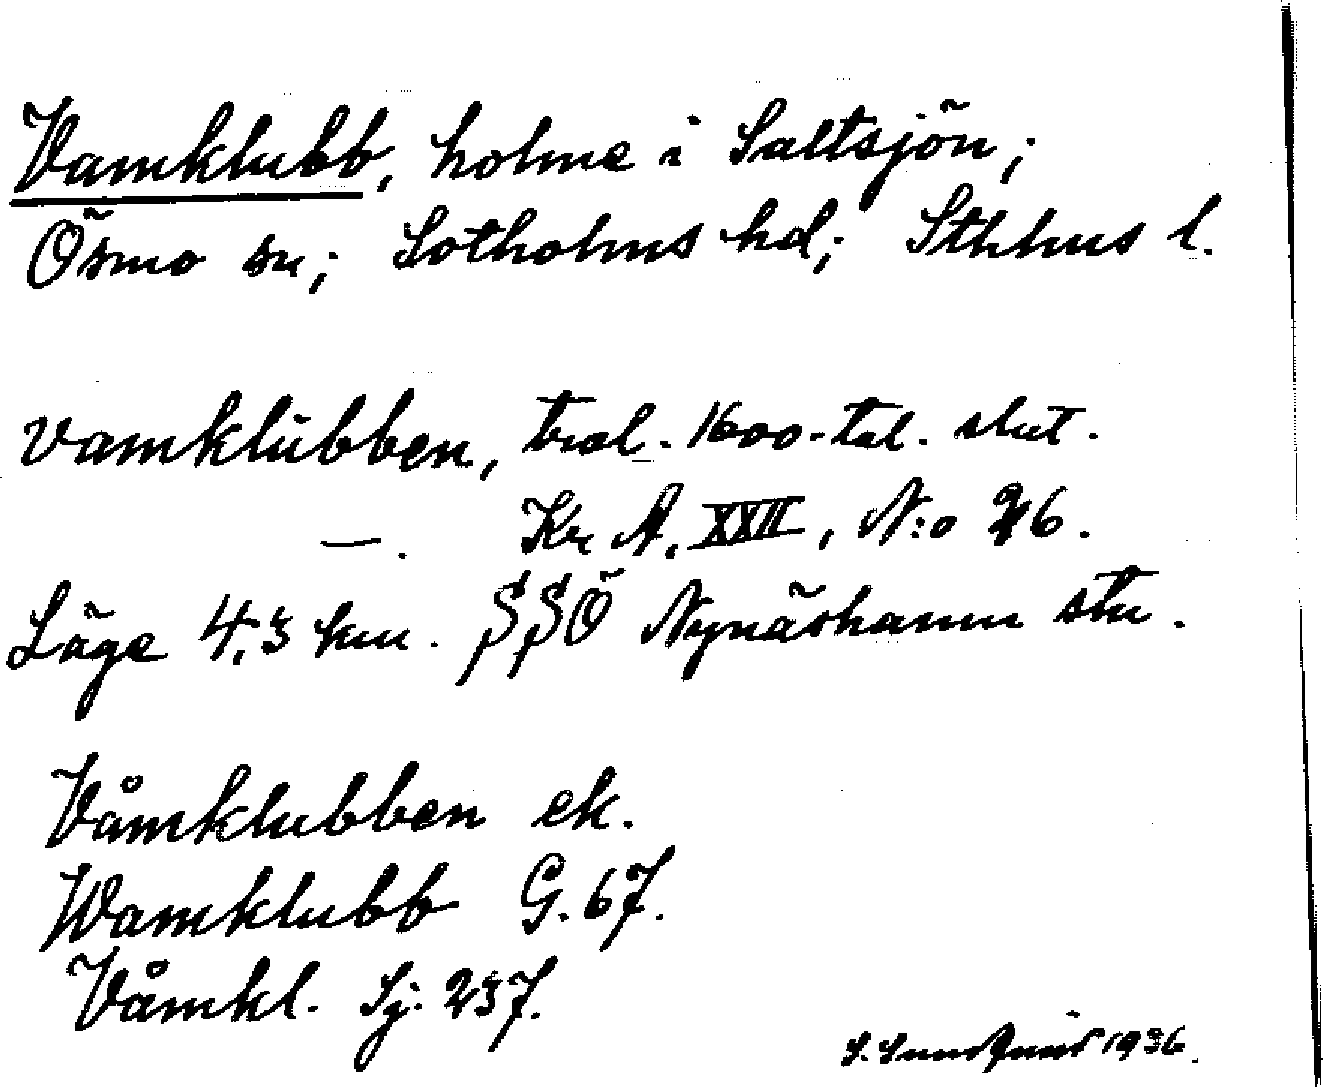 Vamklubb, holme i Saltsjön;
Ösmo sn; Sotholms hd; Sthlms l.
vamklubben, trol. 1600-tal. slut.
—. Kr A, XXII, N:o 26.
Läge 4,3 km. SSÖ Nynäshamn stn.
Våmklubben ek.
Wamklubb G. 67.
Våmkl. Sj. 237.
1936.